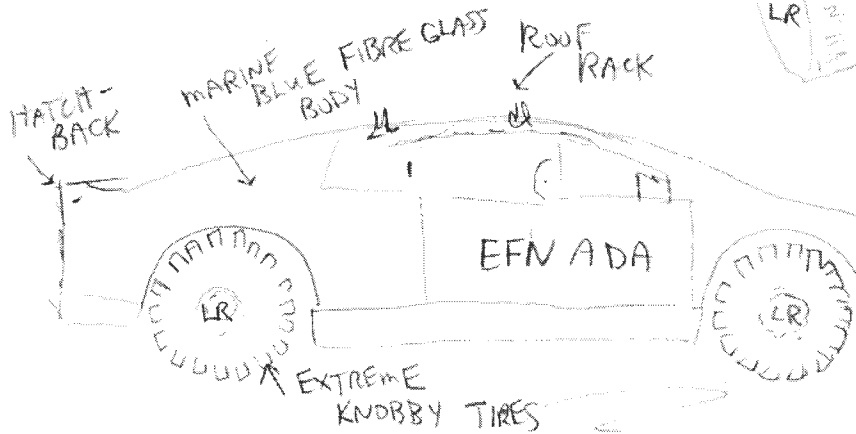 LR
HATCH-
BACK
MARINE
BLUE FIBRE GLASS
BODY
ROOF
RACK
EFN ADA
LR
LR
EXTREME
KNOBBY TIRES